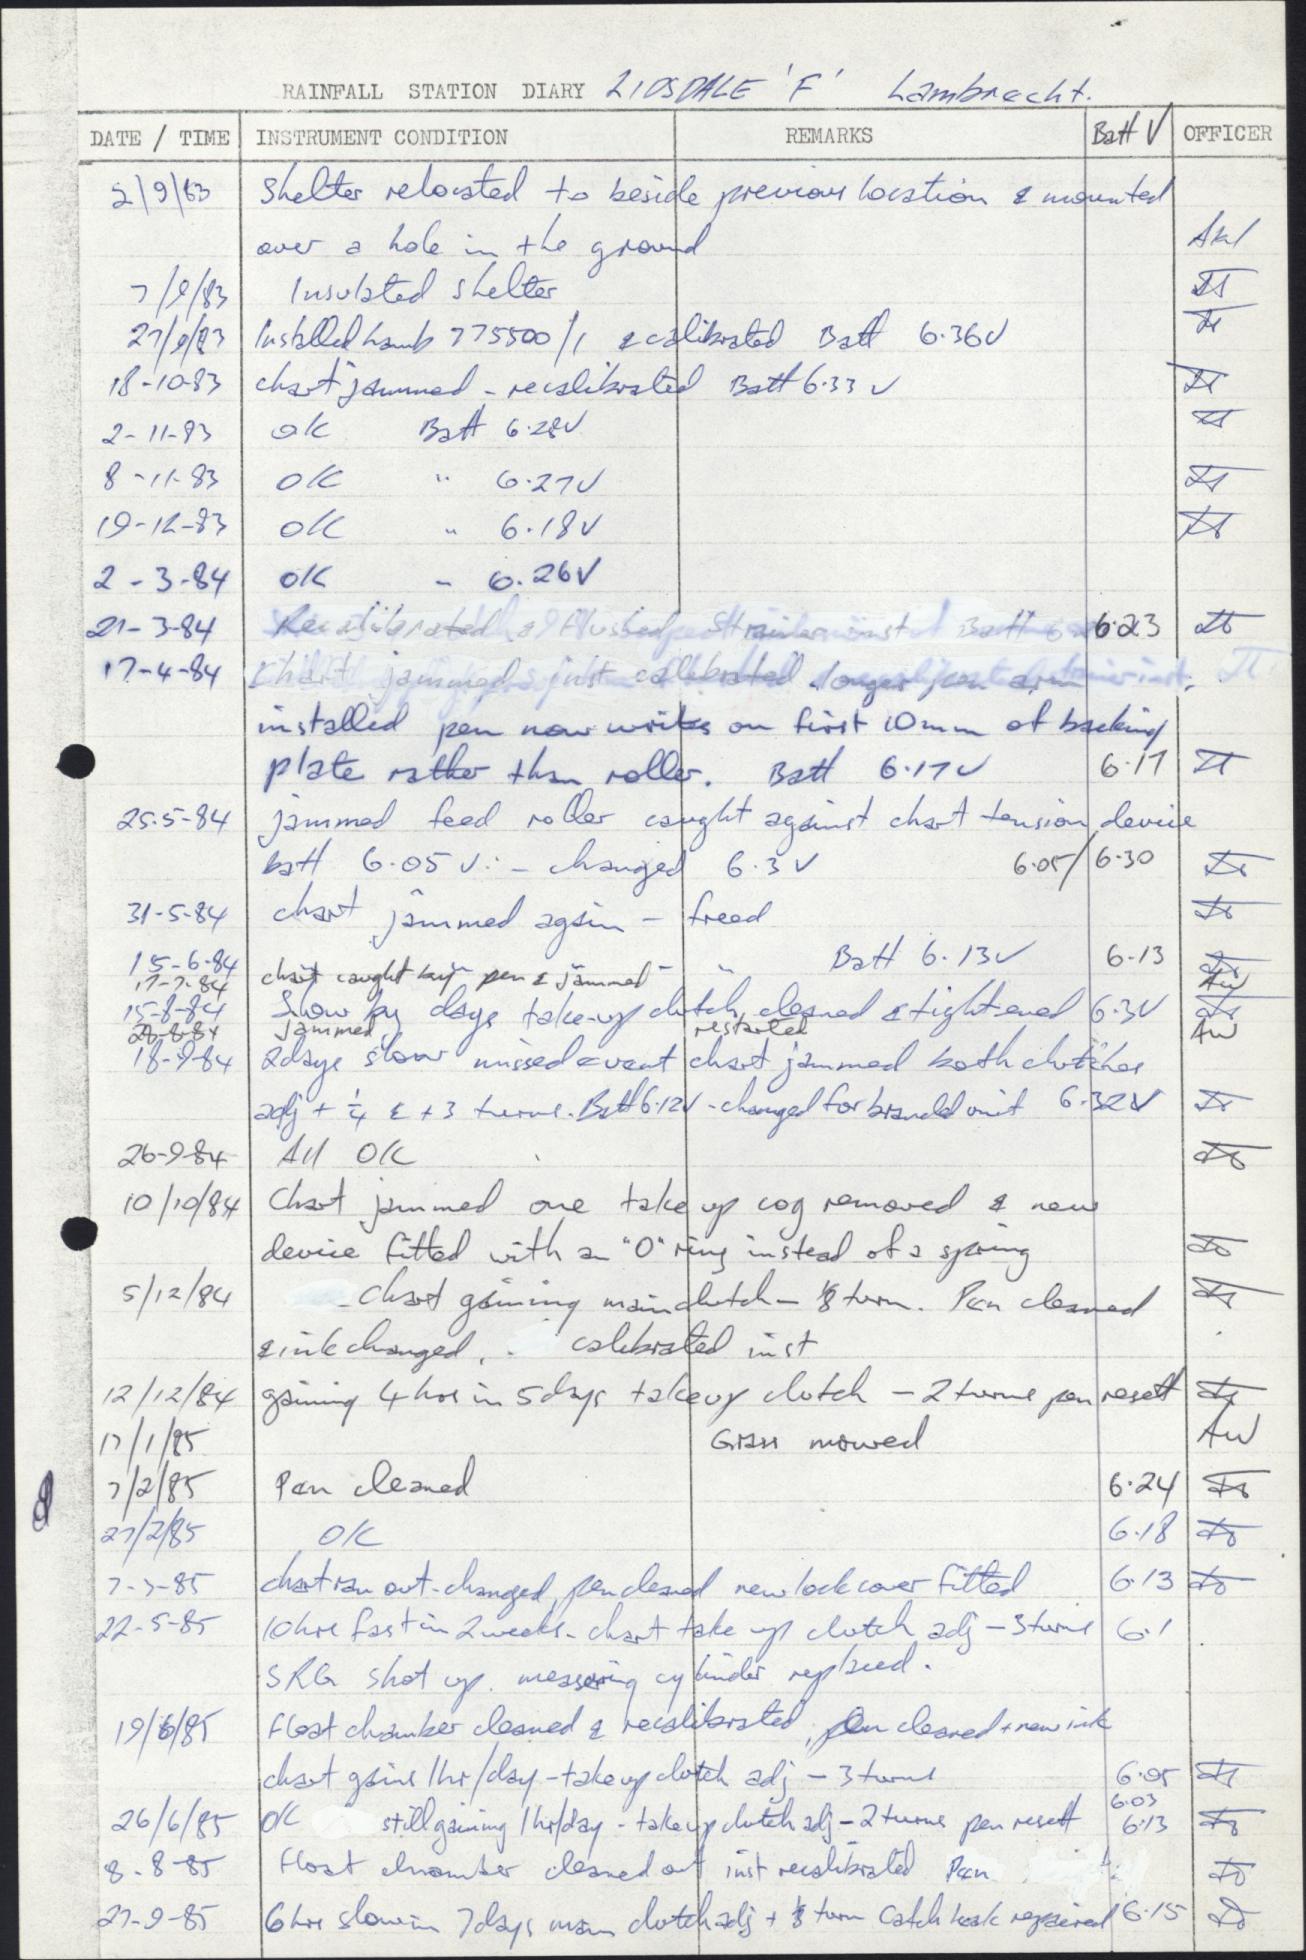 RAINFALL STATION DIARY LIDSDALE 'F' Lambrecht.
DATE / TIME INSTRUMENT CONDITION REMARKS Batt V OFFICER
2/9/83 Shelter relocated to beside previous location & mounted
over a hole in the ground
7/9/83 Insulated shelter
27/9/83 Installed Lamb 775500/1 & calibrated Batt 6.36V
18-10-83 chart jammed - recalibrated Batt 6.33 V
2-11-83 OK Batt 6.28V
8-11-83 OK " 6.27V
19-12-83 OK " 6.18V
2-3-84 OK " 6.26V
21-3-84 Recalibrated & flushed inst Batt 6.23
17-4-84 Chart jammed inst calibrated longer pen arm
installed pen now writes on first 10mm of backing
plate rather than roller. Batt 6.17V 6.17
25.5-84 jammed feed roller caught against chart tension device
batt 6.05 V. - changed 6.3 V 6.05/6.30
31-5-84 chart jammed again - freed
15-6-84 " Batt 6.13V 6.13
17-7-84 chart caught by pen & jammed - AW
15-8-84 Slow by days take-up clutch cleaned & tightened 6.3V
28-8-84 jammed restarted AW
18-9-84 2days slow missed event chart jammed both clutches
adj + 1/4 & + 3 turns. Batt 6.12V - changed for unit 6.32V
26-9-84 All OK
10/10/84 Chart jammed one take up cog removed & new
device fitted with an "O" ring instead of a spring
5/12/84 - Chart gaining main clutch - 1/8 turn. Pen cleaned
& ink changed, calibrated inst
12/12/84 gaining 4 hrs in 5 days take up clutch - 2 turns pen resett
17/1/85 Grass mowed AW
7/2/85 Pen cleaned 6.24
27/2/85 OK 6.18
7-3-85 chart ran out - changed, pen cleaned new lock cover fitted 6.13
22-5-85 10hrs fast in 2 weeks - chart take up clutch adj - 3 turns 6.1
SRG shot up. measuring cylinder replaced.
19/6/85 Float chamber cleaned & recalibrated, Pen cleaned + new ink
chart gains 1hr/day - take up clutch adj - 3 turns 6.05
6.03
26/6/85 OK still gaining 1hr/day - take up clutch adj - 2 turns pen resett 6.13
8-8-85 Float chamber cleaned out inst recalibrated Pen
27-9-85 6hrs slow in 7days main clutch adj + 1/8 turn Catch hook repaired 6.15